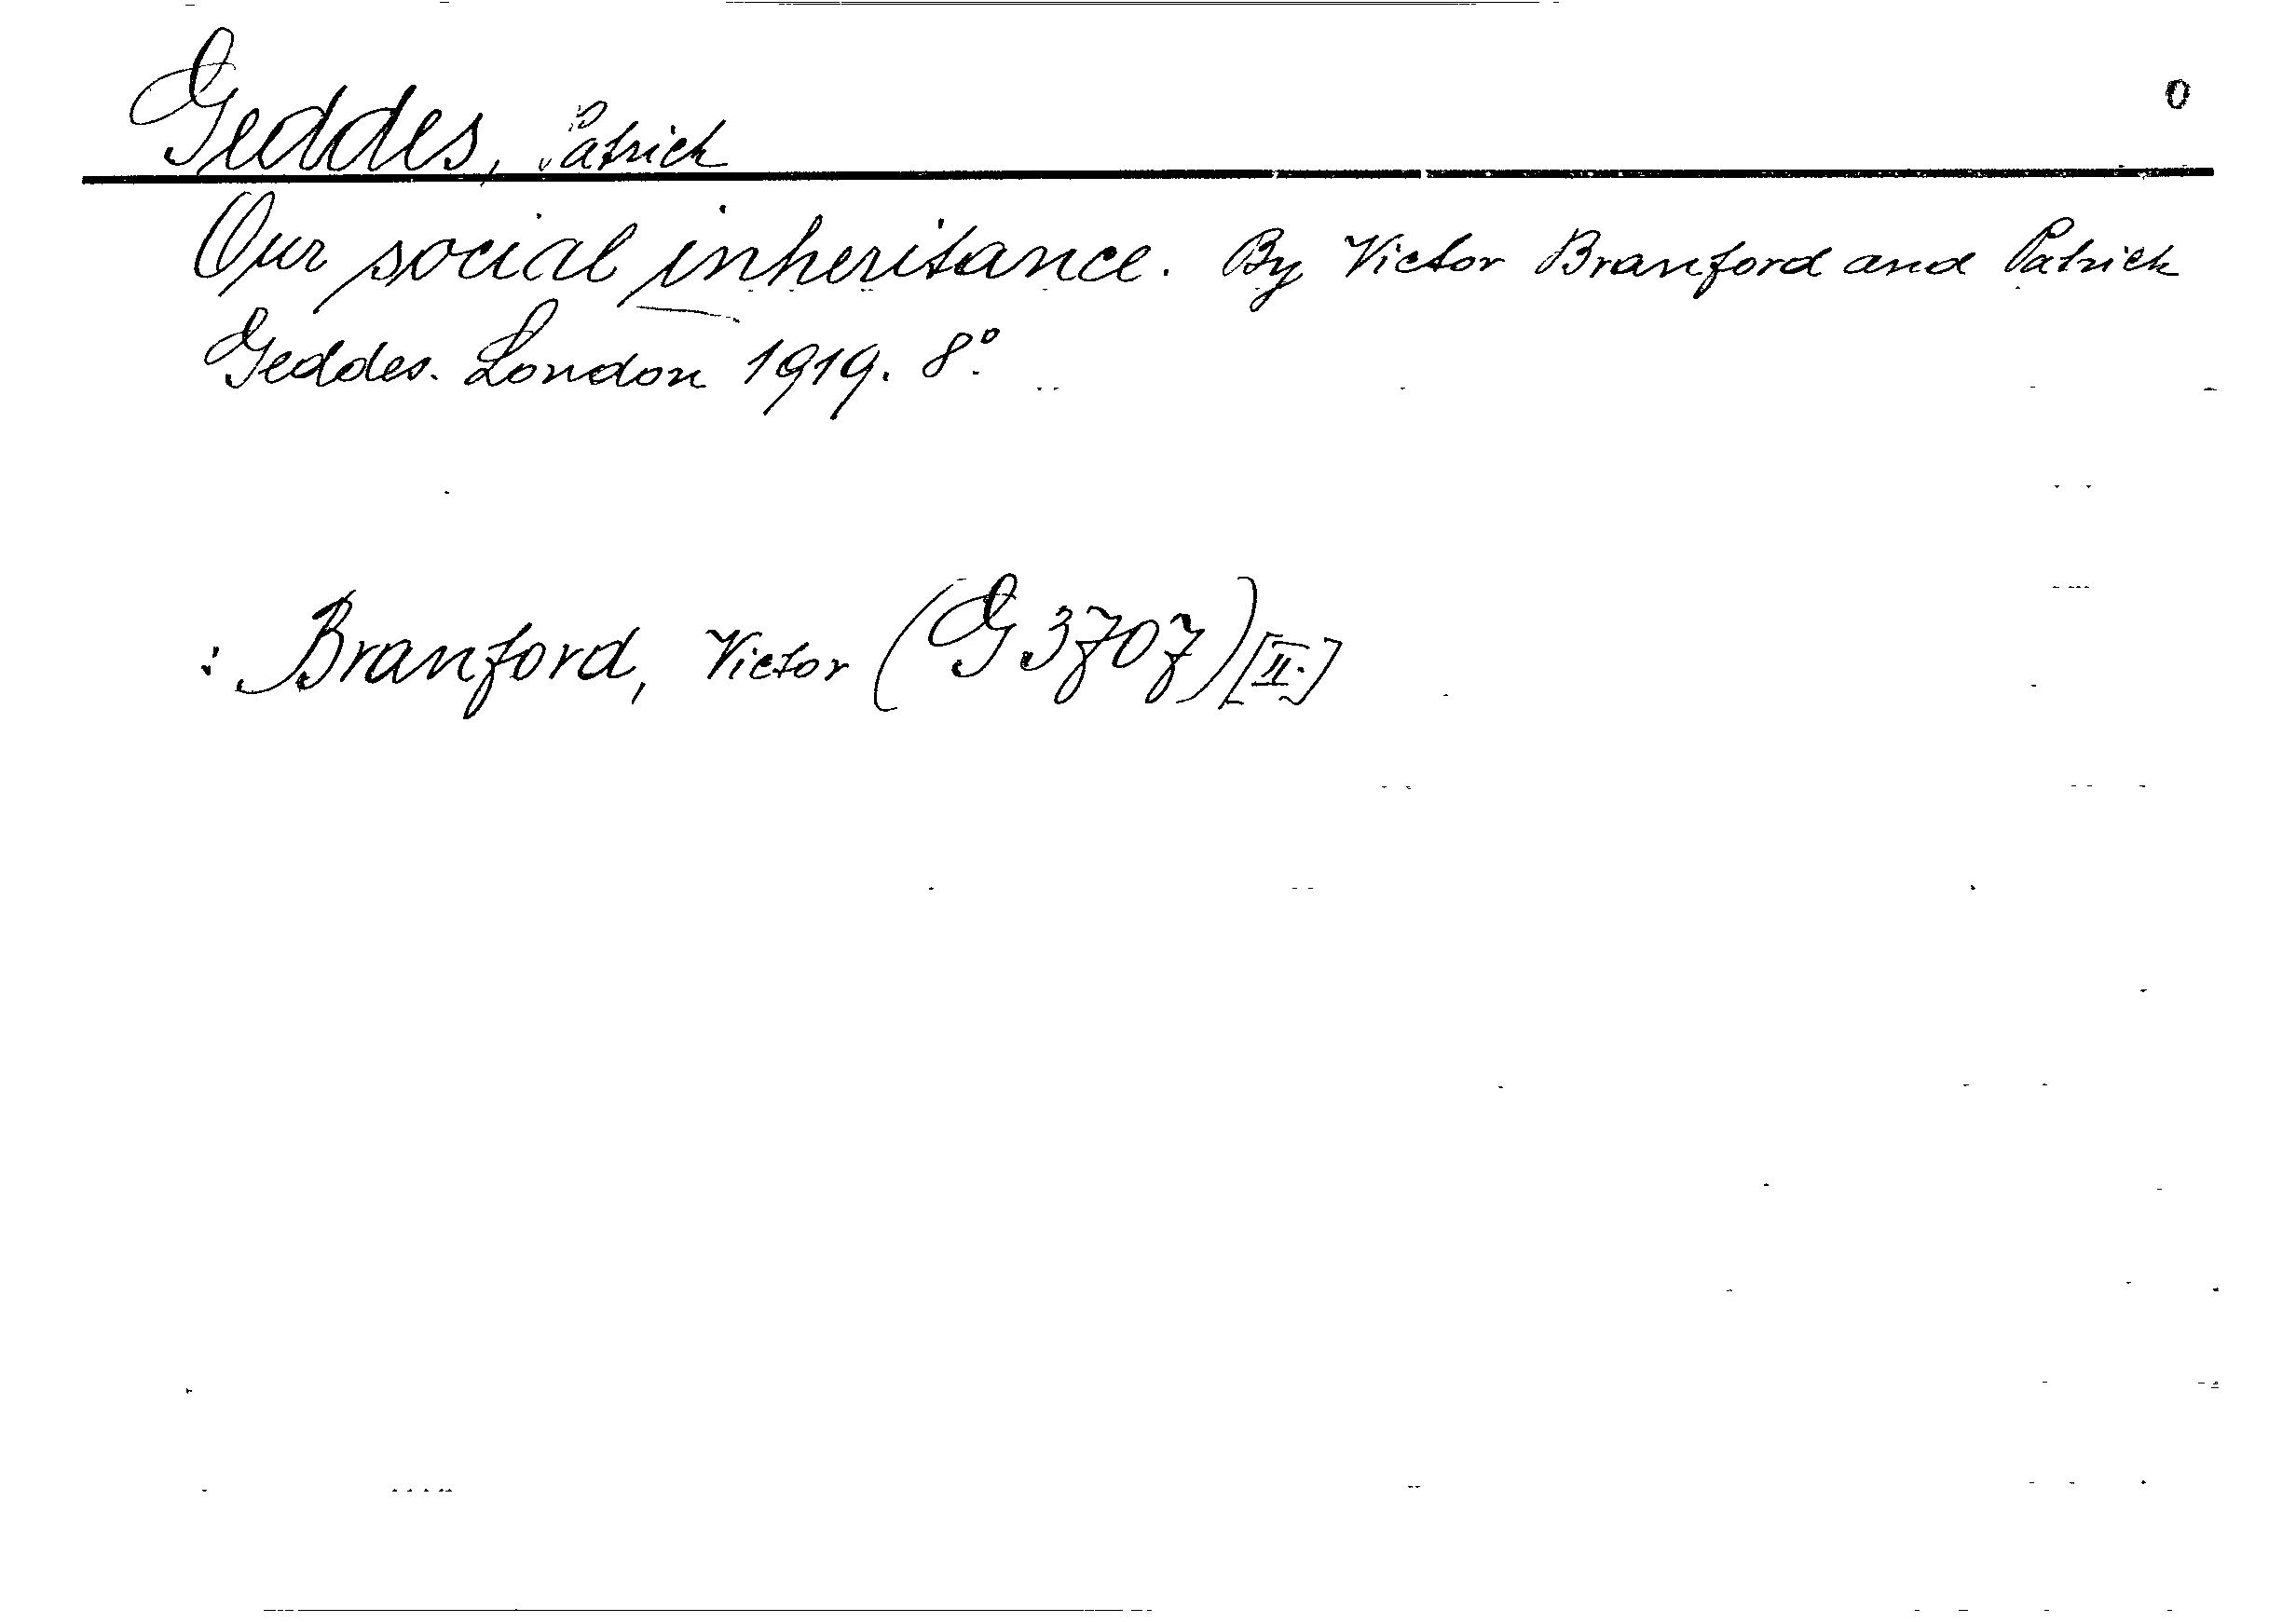 Geddes, Patrick 0
Our social inheritance. By Victor Branford and Patrick
Geddes. London 1919. 8°.
: Branford, Victor (G 3707) [II.]